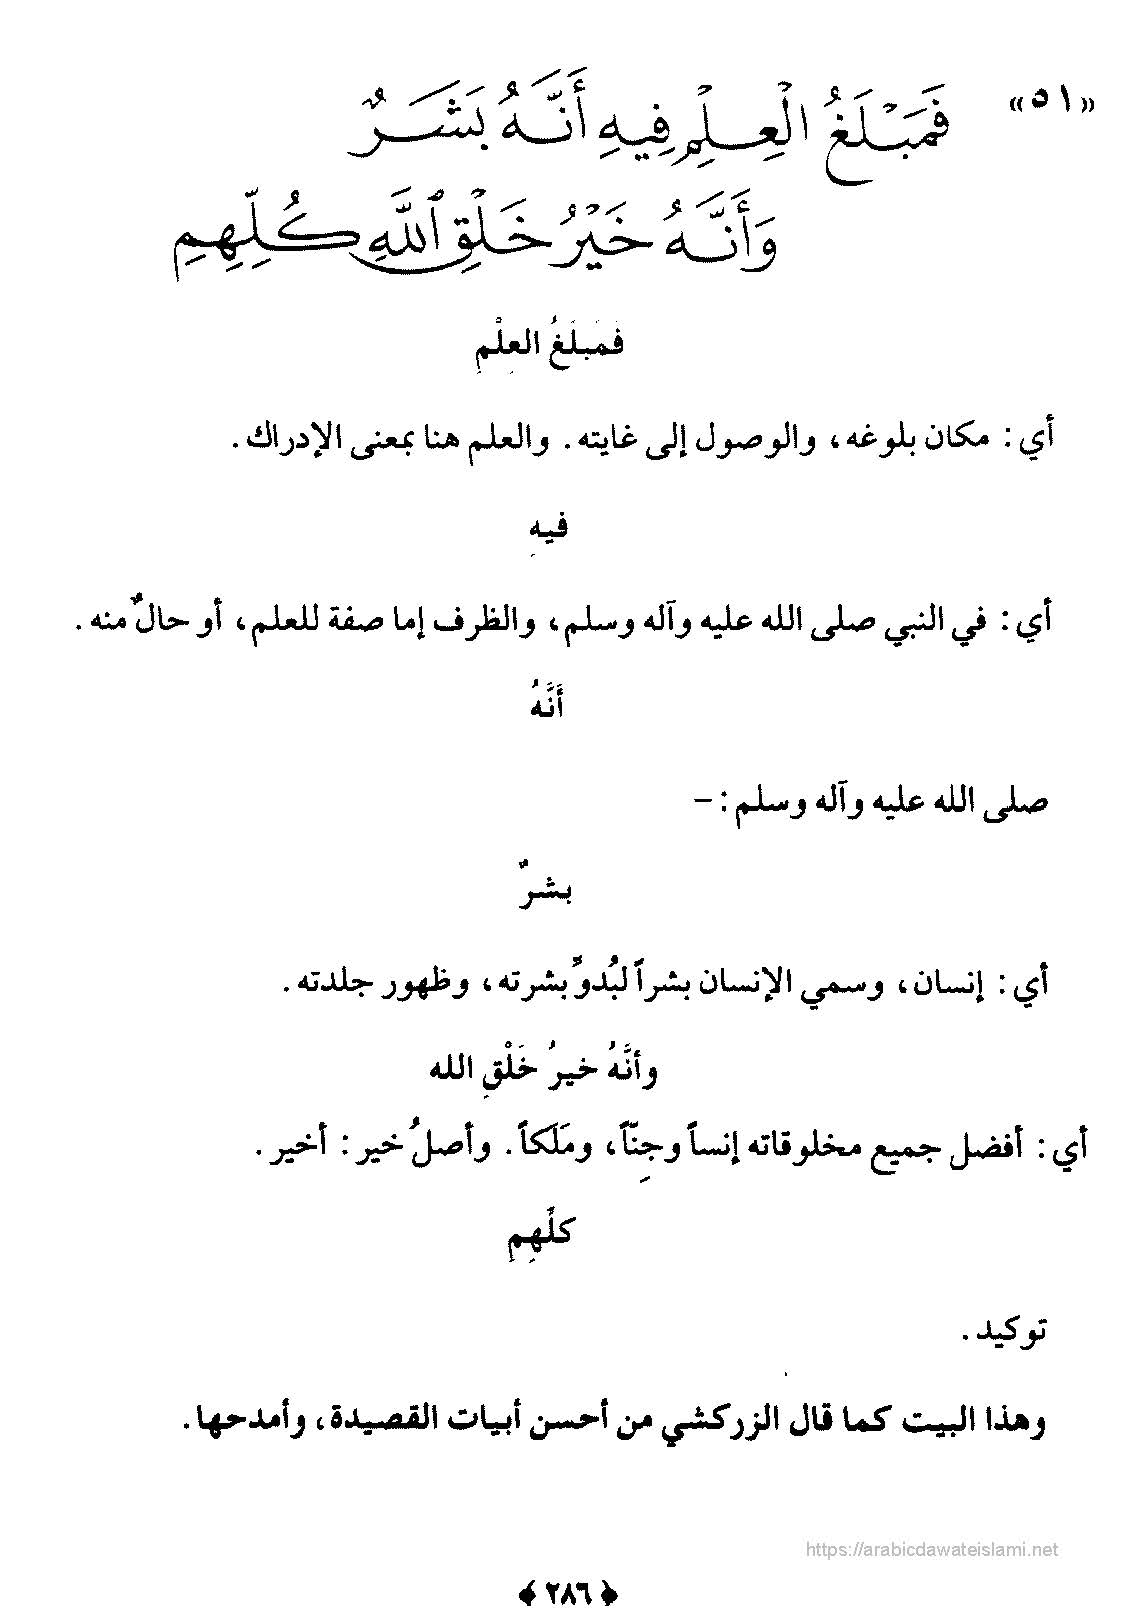 «٥١» فَمَبْلَغُ الْعِلْمِ فِيهِ أَنَّهُ بَشَرٌ
وَأَنَّهُ خَيْرُ خَلْقِ ٱللَّهِ كُلِّهِمِ
فَمَبلَغُ العِلْمِ
أي: مكان بلوغه، والوصول إلى غايته. والعلم هنا بمعنى الإدراك.
فيهِ
أي: في النبي صلى الله عليه وآله وسلم، والظرف إما صفة للعلم، أو حالٌ منه.
أَنَّهُ
صلى الله عليه وآله وسلم: –
بشرٌ
أي: إنسان، وسمي الإنسان بشراً لبُدوِّ بشرته، وظهور جلدته.
وأنَّهُ خيرُ خَلْقِ الله
أي: أفضل جميع مخلوقاته إنساً وجِنّاً، ومَلَكاً. وأصلُ خير: أخير.
كلِّهِمِ
توكيد.
وهذا البيت كما قال الزركشي من أحسن أبيات القصيدة، وأمدحها.
https://arabicdawateislami.net
﴿٢٨٦﴾